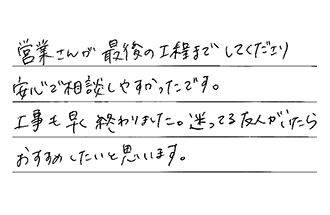 営業さんが最後の工程までしてくださり
安心で相談しやすかったです。
工事も早く終わりました。迷ってる友人がいたら
おすすめしたいと思います。